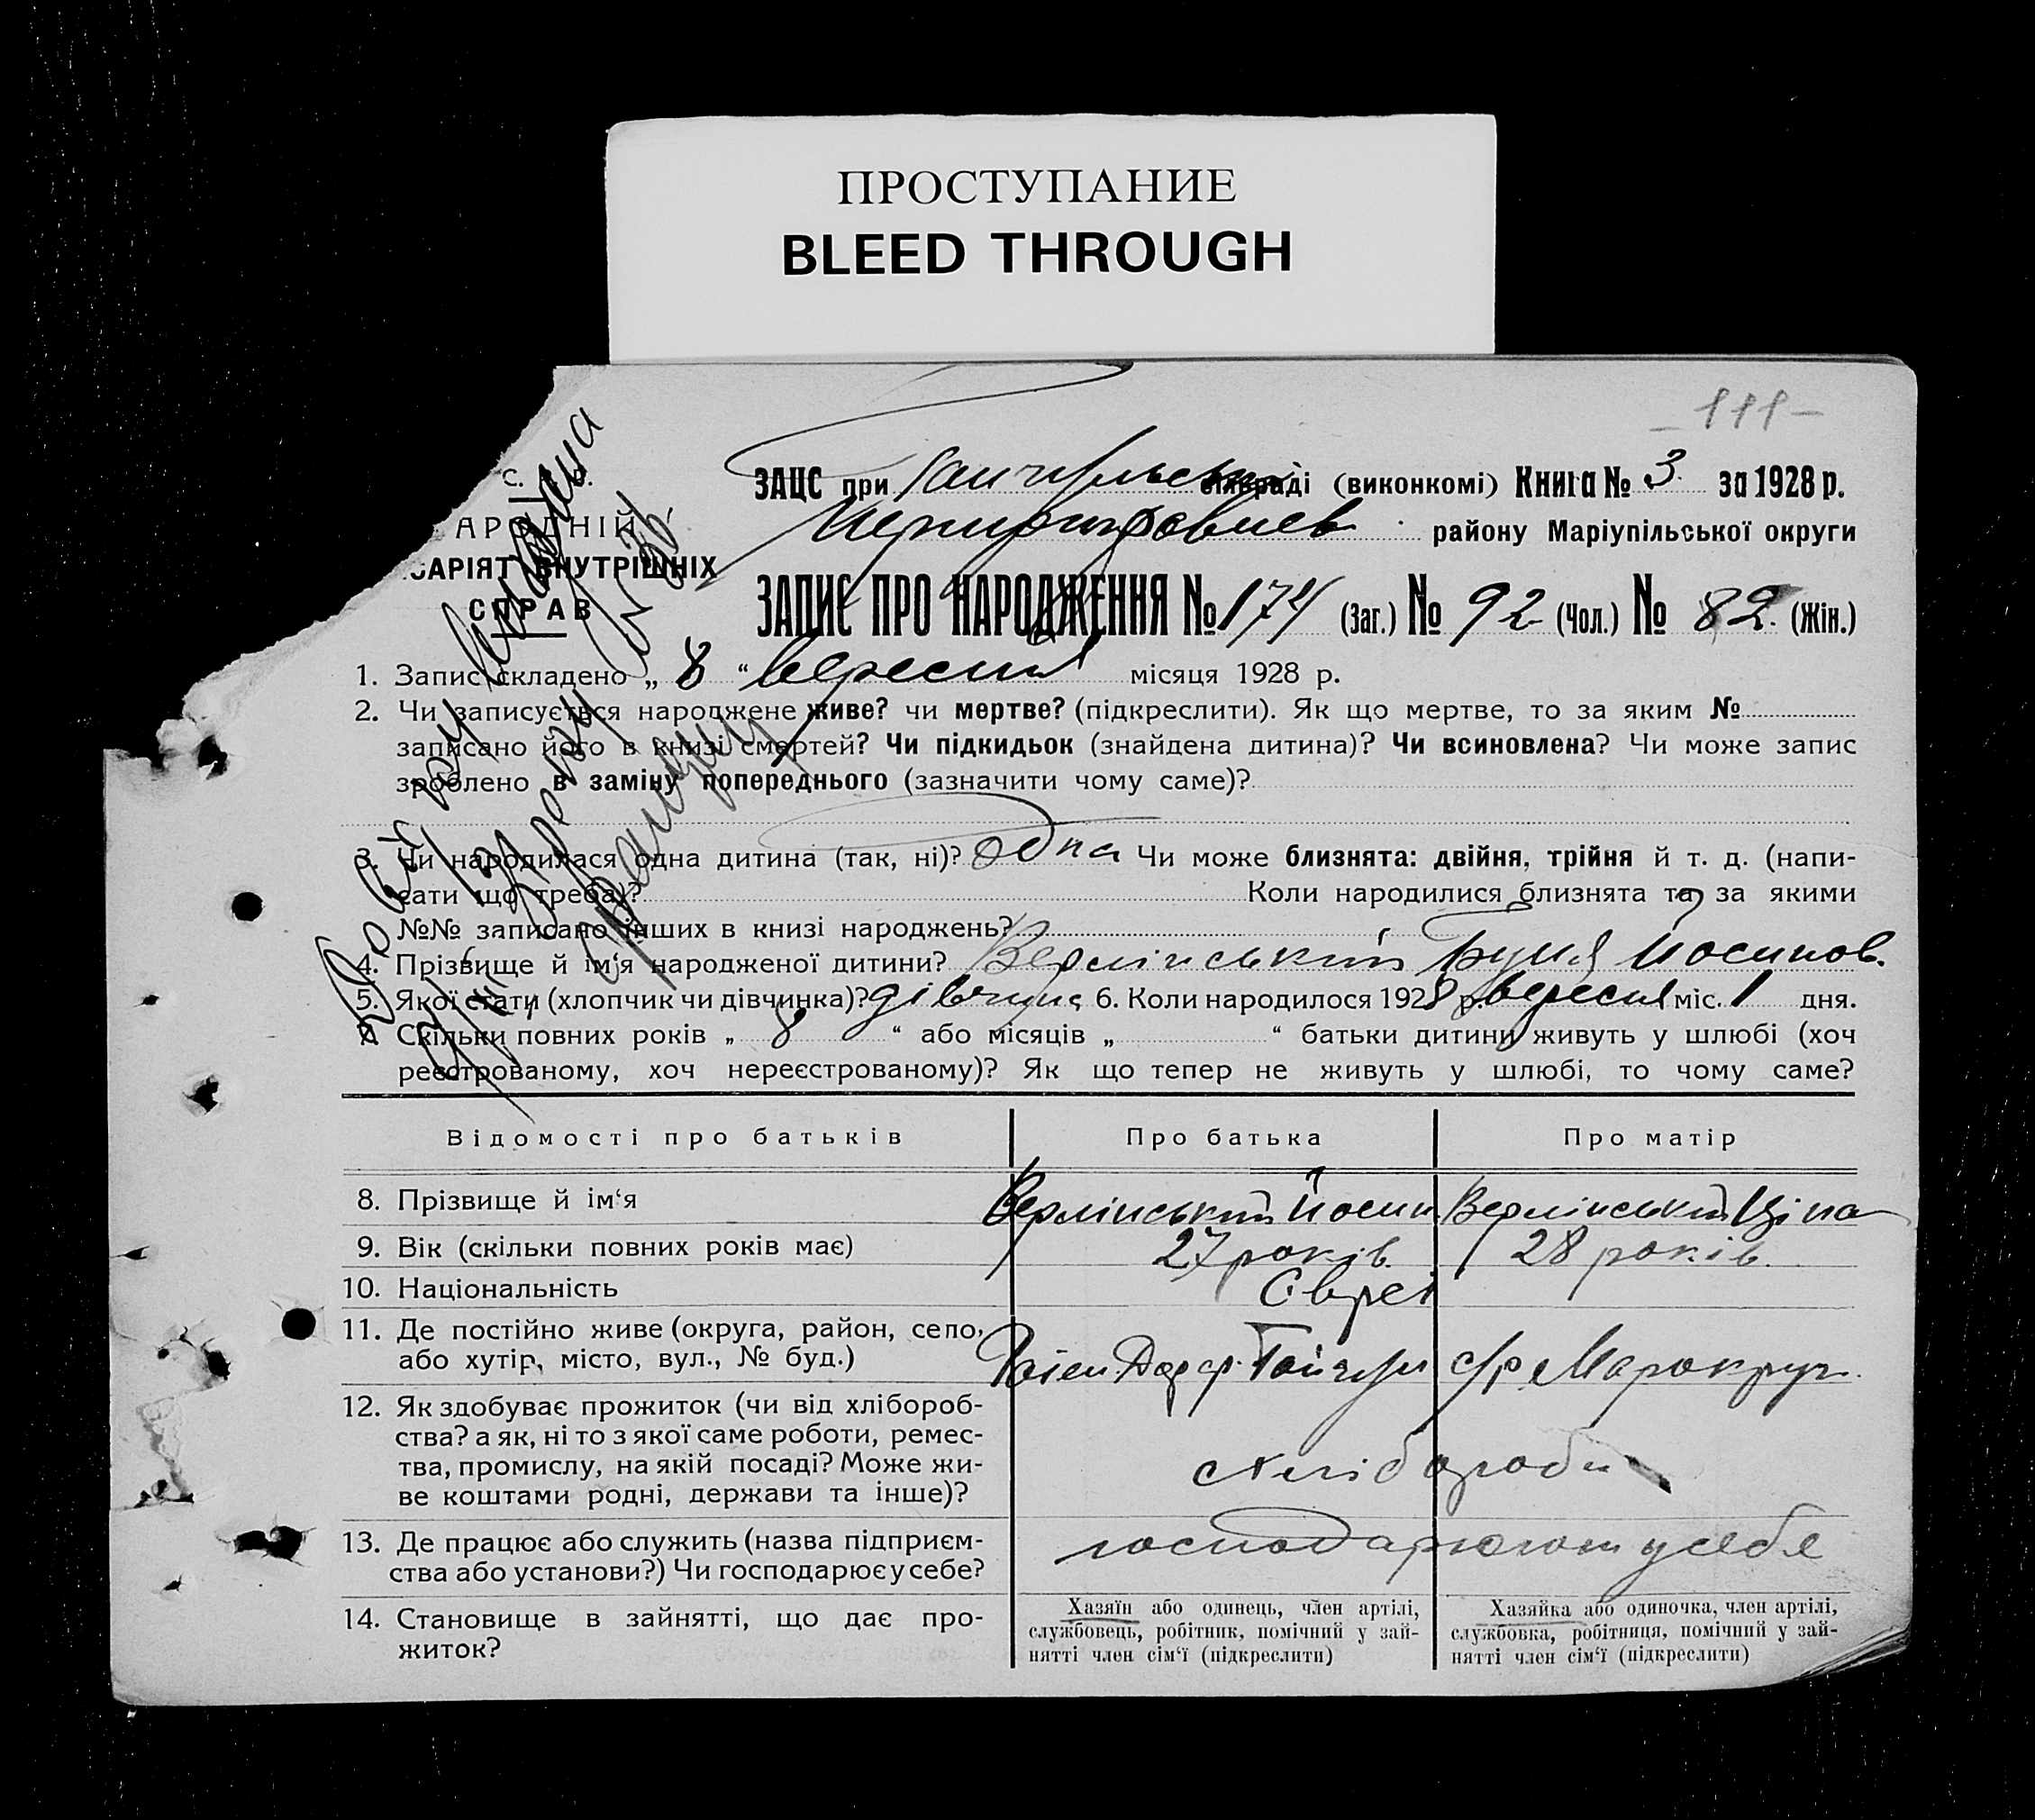 ПРОСТУПАНИЕ
BLEED THROUGH
111-
С.
АРОДНІЙ
САРІЯТ ВНУТРІШНІХ
СПРАВ
ЗАЦС при сільраді (виконкомі) Книга № 3 за 1928 р.
району Маріупільської округи
ЗАПИС ПРО НАРОДЖЕННЯ № 174 (Заг.) № 92 (Чол.) № 82 (Жін.)
1. Запис складено „ 8 “ вересня місяця 1928 р.
2. Чи записується народжене живе? чи мертве? (підкреслити). Як що мертве, то за яким №
записано його в книзі смертей? Чи підкидьок (знайдена дитина)? Чи всиновлена? Чи може запис
зроблено в заміну попереднього (зазначити чому саме)?
3. Чи народилася одна дитина (так, ні)? Одна Чи може близнята: двійня, трійня й т. д. (напи-
сати що треба)? Коли народилися близнята та за якими
№№ записано інших в книзі народжень?
4. Прізвище й ім‘я народженої дитини? Верлінський Буня Йосипов.
5. Якої стати (хлопчик чи дівчинка)? дівчина 6. Коли народилося 1928 р. вересня міс. 1 дня.
7. Скільки повних років „ 8 “ або місяців „ “ батьки дитини живуть у шлюбі (хоч
реєстрованому, хоч нереєстрованому)? Як що тепер не живуть у шлюбі, то чому саме?
Відомості про батьків Про батька Про матір
8. Прізвище й ім‘я Верлінський Йосип. Верлінський Ціпа
9. Вік (скільки повних років має) 27 років. 28 років.
10. Національність Євреї
11. Де постійно живе (округа, район, село,
або хутір, місто, вул., № буд.)
12. Як здобуває прожиток (чи від хлібороб-
ства? а як, ні то з якої саме роботи, ремес-
тва, промислу, на якій посаді? Може жи-
ве коштами родні, держави та інше)?
хлібороби
13. Де працює або служить (назва підприєм-
ства або установи?) Чи господарює у себе?
господарюют у себе
14. Становище в зайнятті, що дає про-
житок?
Хазяїн або одинець, член артілі,
службовець, робітник, помічний у зай-
нятті член сім‘ї (підкреслити)
Хазяйка або одиночка, член артілі,
службовка, робітниця, помічний у зай-
нятті член сім‘ї (підкреслити)